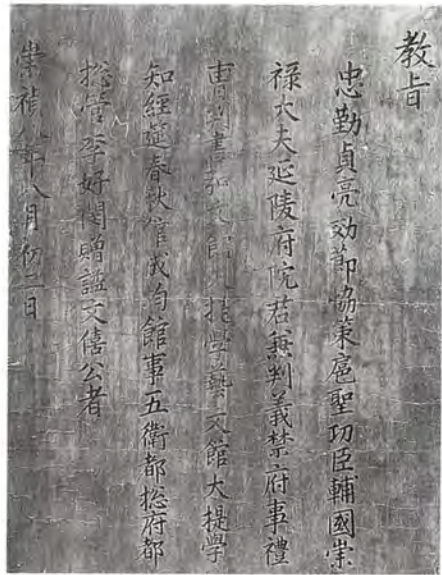 教旨
忠勤貞亮効節協策扈聖功臣輔國崇
祿大夫延陵府院君兼判義禁府事禮
曹判書弘文館大提學藝文館大提學
知經筵春秋館成均館事五衛都摠府都
摠管李好閔贈諡文僖公者
崇禎八年八月初二日